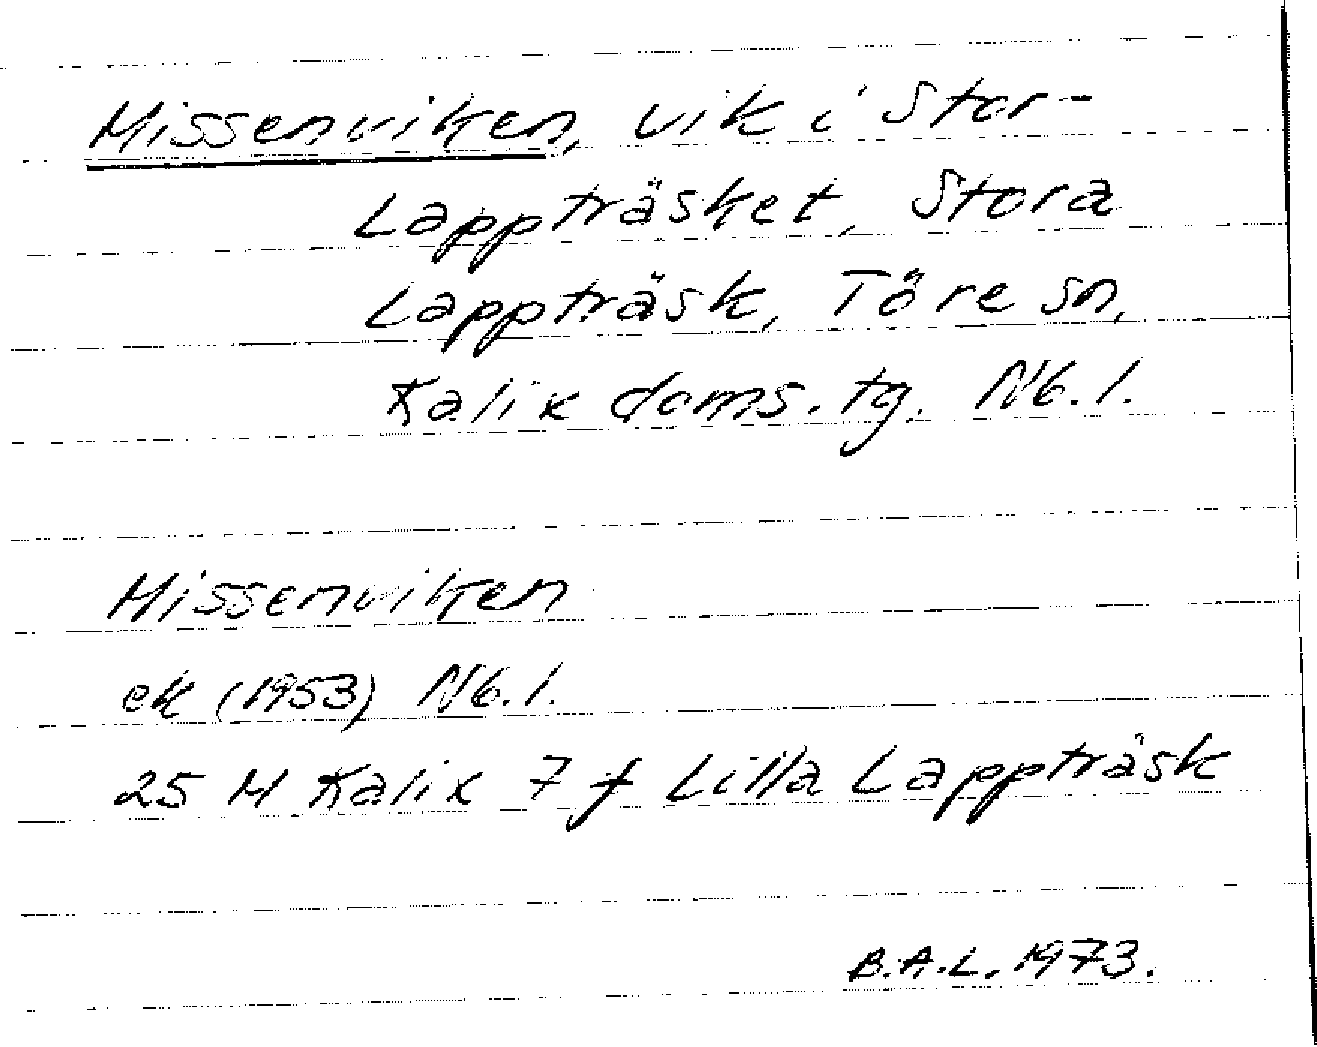 Missenviken, vik i Stor-
Lappträsket, Stora
Lappträsk, Töre sn,
Kalix doms. tg. Nb. l.
Missenviken
ek (1953) Nb. l.
25 M Kalix 7 f Lilla Lappträsk
B.A.L. 1973.